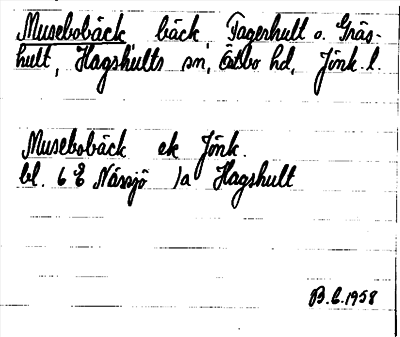 Musebobäck bäck, Fagerhult o. Gräs-
hult, Hagshults sn, Östbo hd, Jönk. l.
Musebobäck ek Jönk.
bl. 6 E Nässjö 1a Hagshult
B.E. 1958